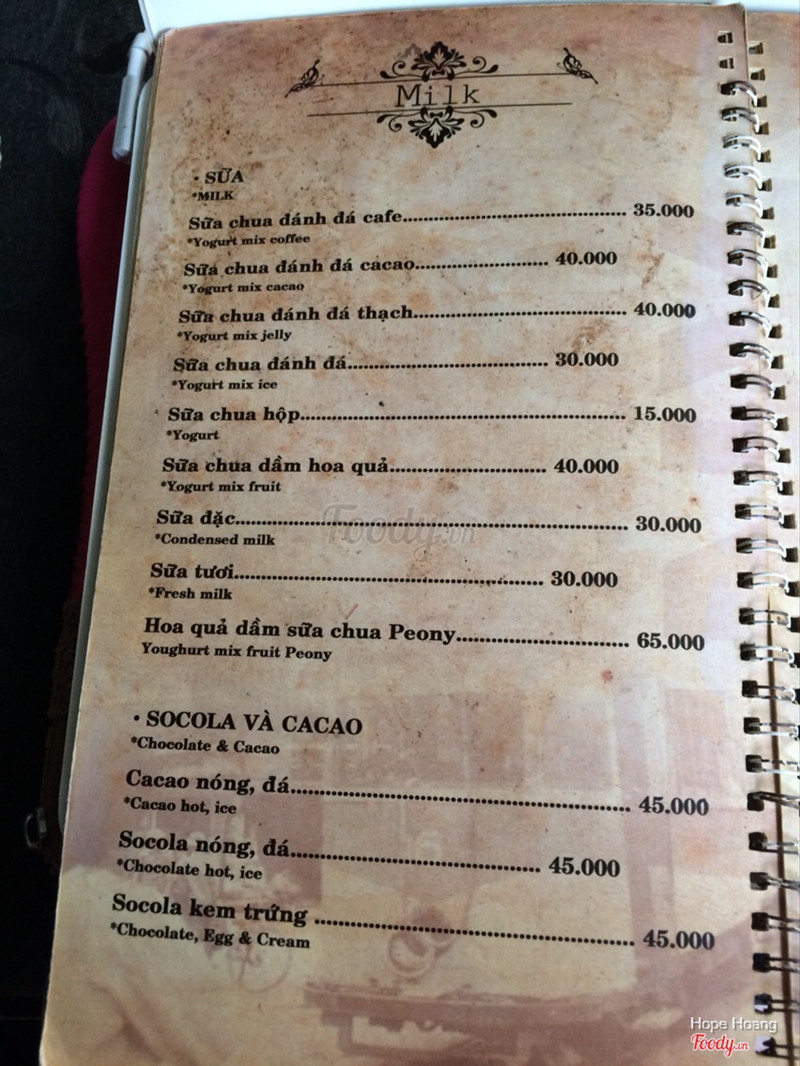 Milk
· SỮA
*MILK
Sữa chua đánh đá cafe........................................ 35.000
*Yogurt mix coffee
Sữa chua đánh đá cacao........................ 40.000
*Yogurt mix cacao
Sữa chua đánh đá thạch...................................... 40.000
*Yogurt mix jelly
Sữa chua đánh đá.................................... 30.000
*Yogurt mix ice
Sữa chua hộp.......................................................... 15.000
*Yogurt
Sữa chua dầm hoa quả............................ 40.000
*Yogurt mix fruit
Sữa đặc...................................................................... 30.000
*Condensed milk
Sữa tươi....................................................... 30.000
*Fresh milk
Hoa quả dầm sữa chua Peony.............................. 65.000
Youghurt mix fruit Peony
· SOCOLA VÀ CACAO
*Chocolate & Cacao
Cacao nóng, đá......................................................... 45.000
*Cacao hot, ice
Socola nóng, đá......................................... 45.000
*Chocolate hot, ice
Socola kem trứng ..................................................... 45.000
*Chocolate, Egg & Cream
Foody.vn
Hope Hoang
Foody.vn